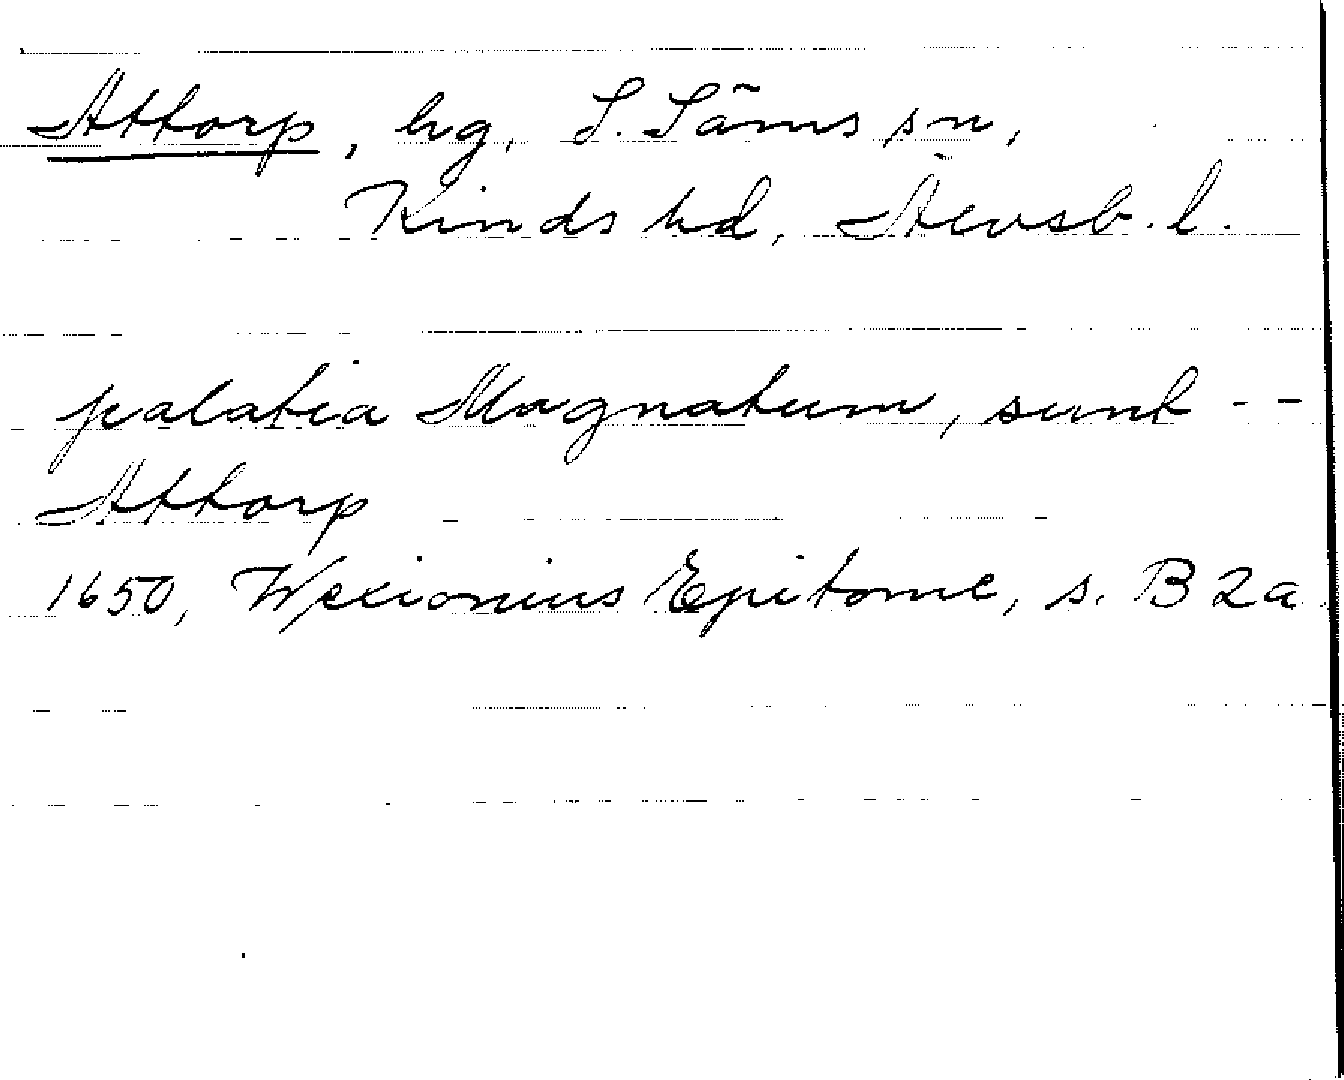 Attorp, hg, S. Säms sn,
Kinds hd, Älvsb. l.
palatia Magnatum, sunt - -
Attorp
1650, Wexionius Epitome, s. B 2a